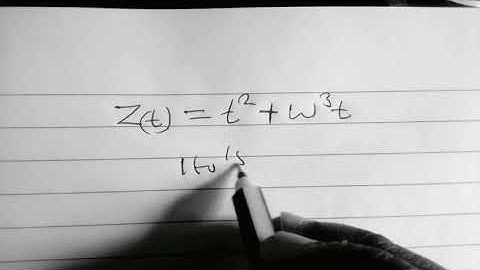 Z(t) = t² + w³t
Ito's